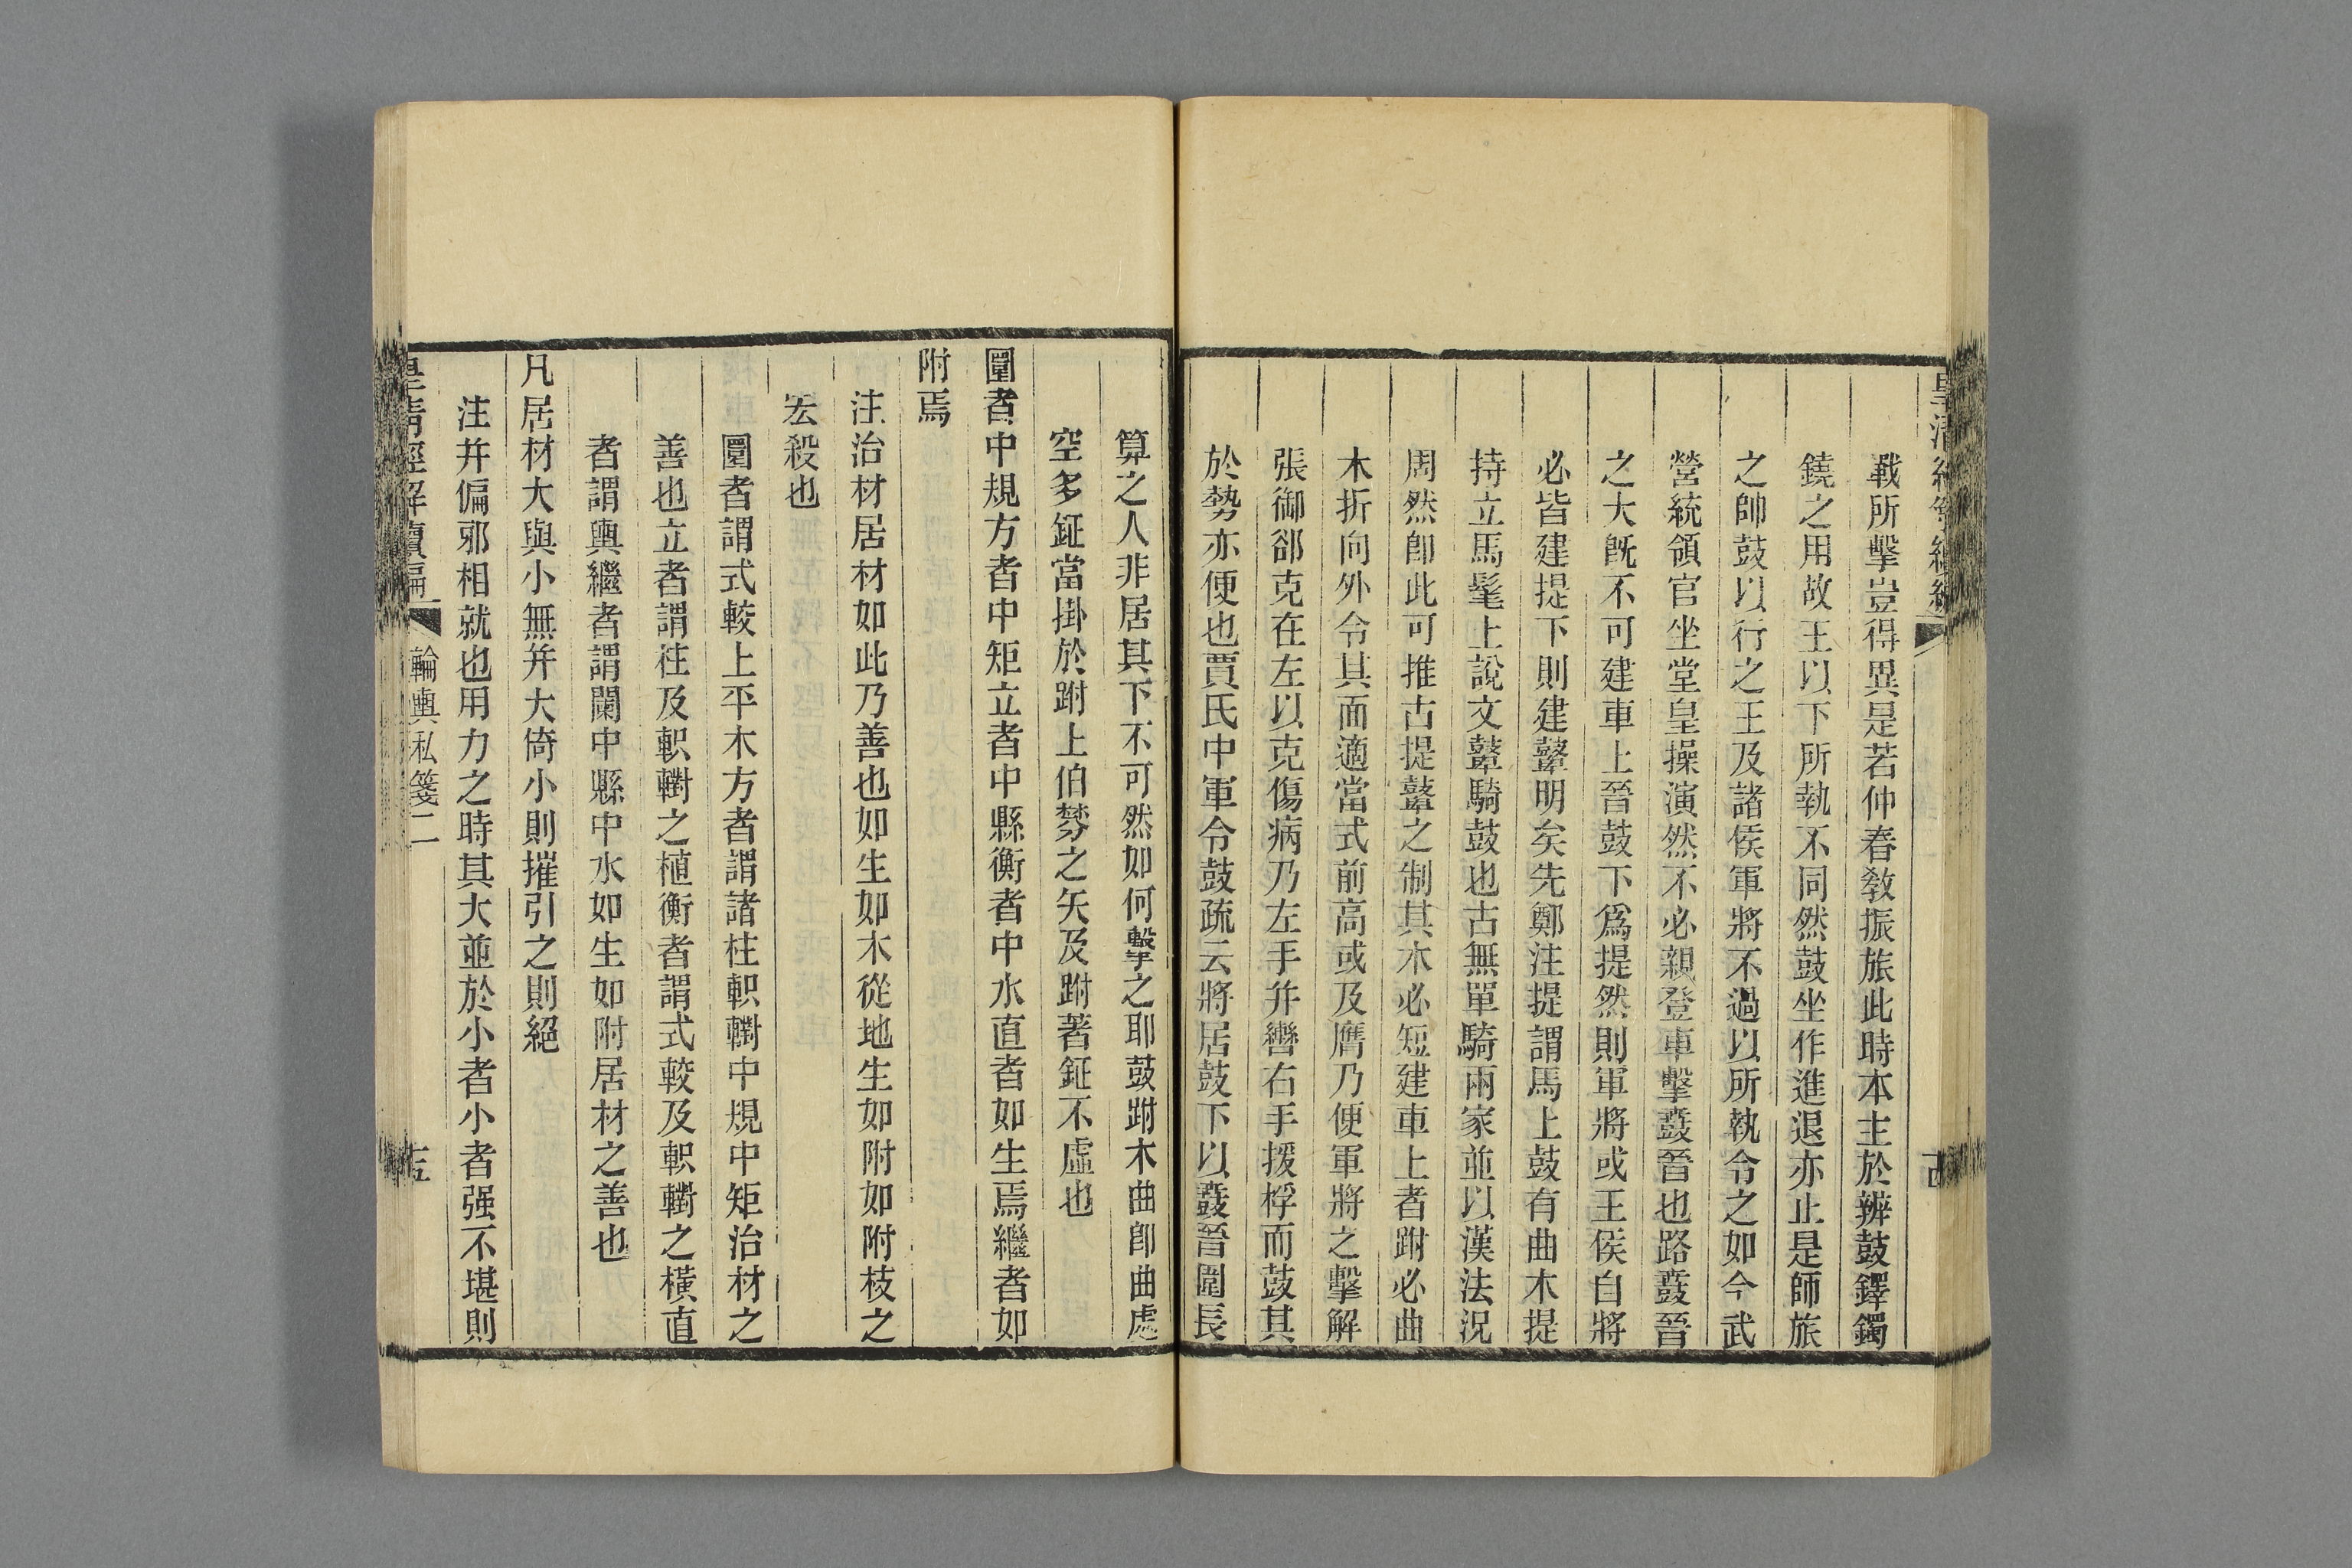 戰所擊豈得異是若仲春敎振旅此時本主於辨鼓鐸鐲
鐃之用故王以下所執不同然鼓坐作進退亦止是師旅
之帥鼓以行之王及諸侯軍將不過以所執令之如今武
營統領官坐堂皇操演然不必親登車擊鼖晉也路鼖晉
之大旣不可建車上晉鼓下爲提然則軍將或王侯自將
必皆建提下則建鼙明矣先鄭注提謂馬上鼓有曲木提
持立馬髦上說文鼙騎鼓也古無單騎兩家並以漢法況
周然卽此可推古提鼙之制其木必短建車上者跗必曲
木折向外令其面適當式前高或及膺乃便軍將之擊解
張御郤克在左以克傷病乃左手并轡右手援桴而鼓其
於勢亦便也賈氏中軍令鼓疏云將居鼓下以鼖晉圍長
算之人非居其下不可然如何擊之耶鼓跗木曲卽曲處
空多鉦當掛於跗上伯棼之矢及跗著鉦不虛也
圜者中規方者中矩立者中縣衡者中水直者如生焉繼者如
附焉
注治材居材如此乃善也如生如木從地生如附如附枝之
宏殺也
圜者謂式較上平木方者謂諸柱軹轛中規中矩治材之
善也立者謂柱及軹轛之植衡者謂式較及軹轛之橫直
者謂輿繼者謂闌中縣中水如生如附居材之善也
凡居材大與小無并大倚小則摧引之則絕
注并偏邪相就也用力之時其大並於小者小者强不堪則
皇淸經解續編
輪輿私箋二